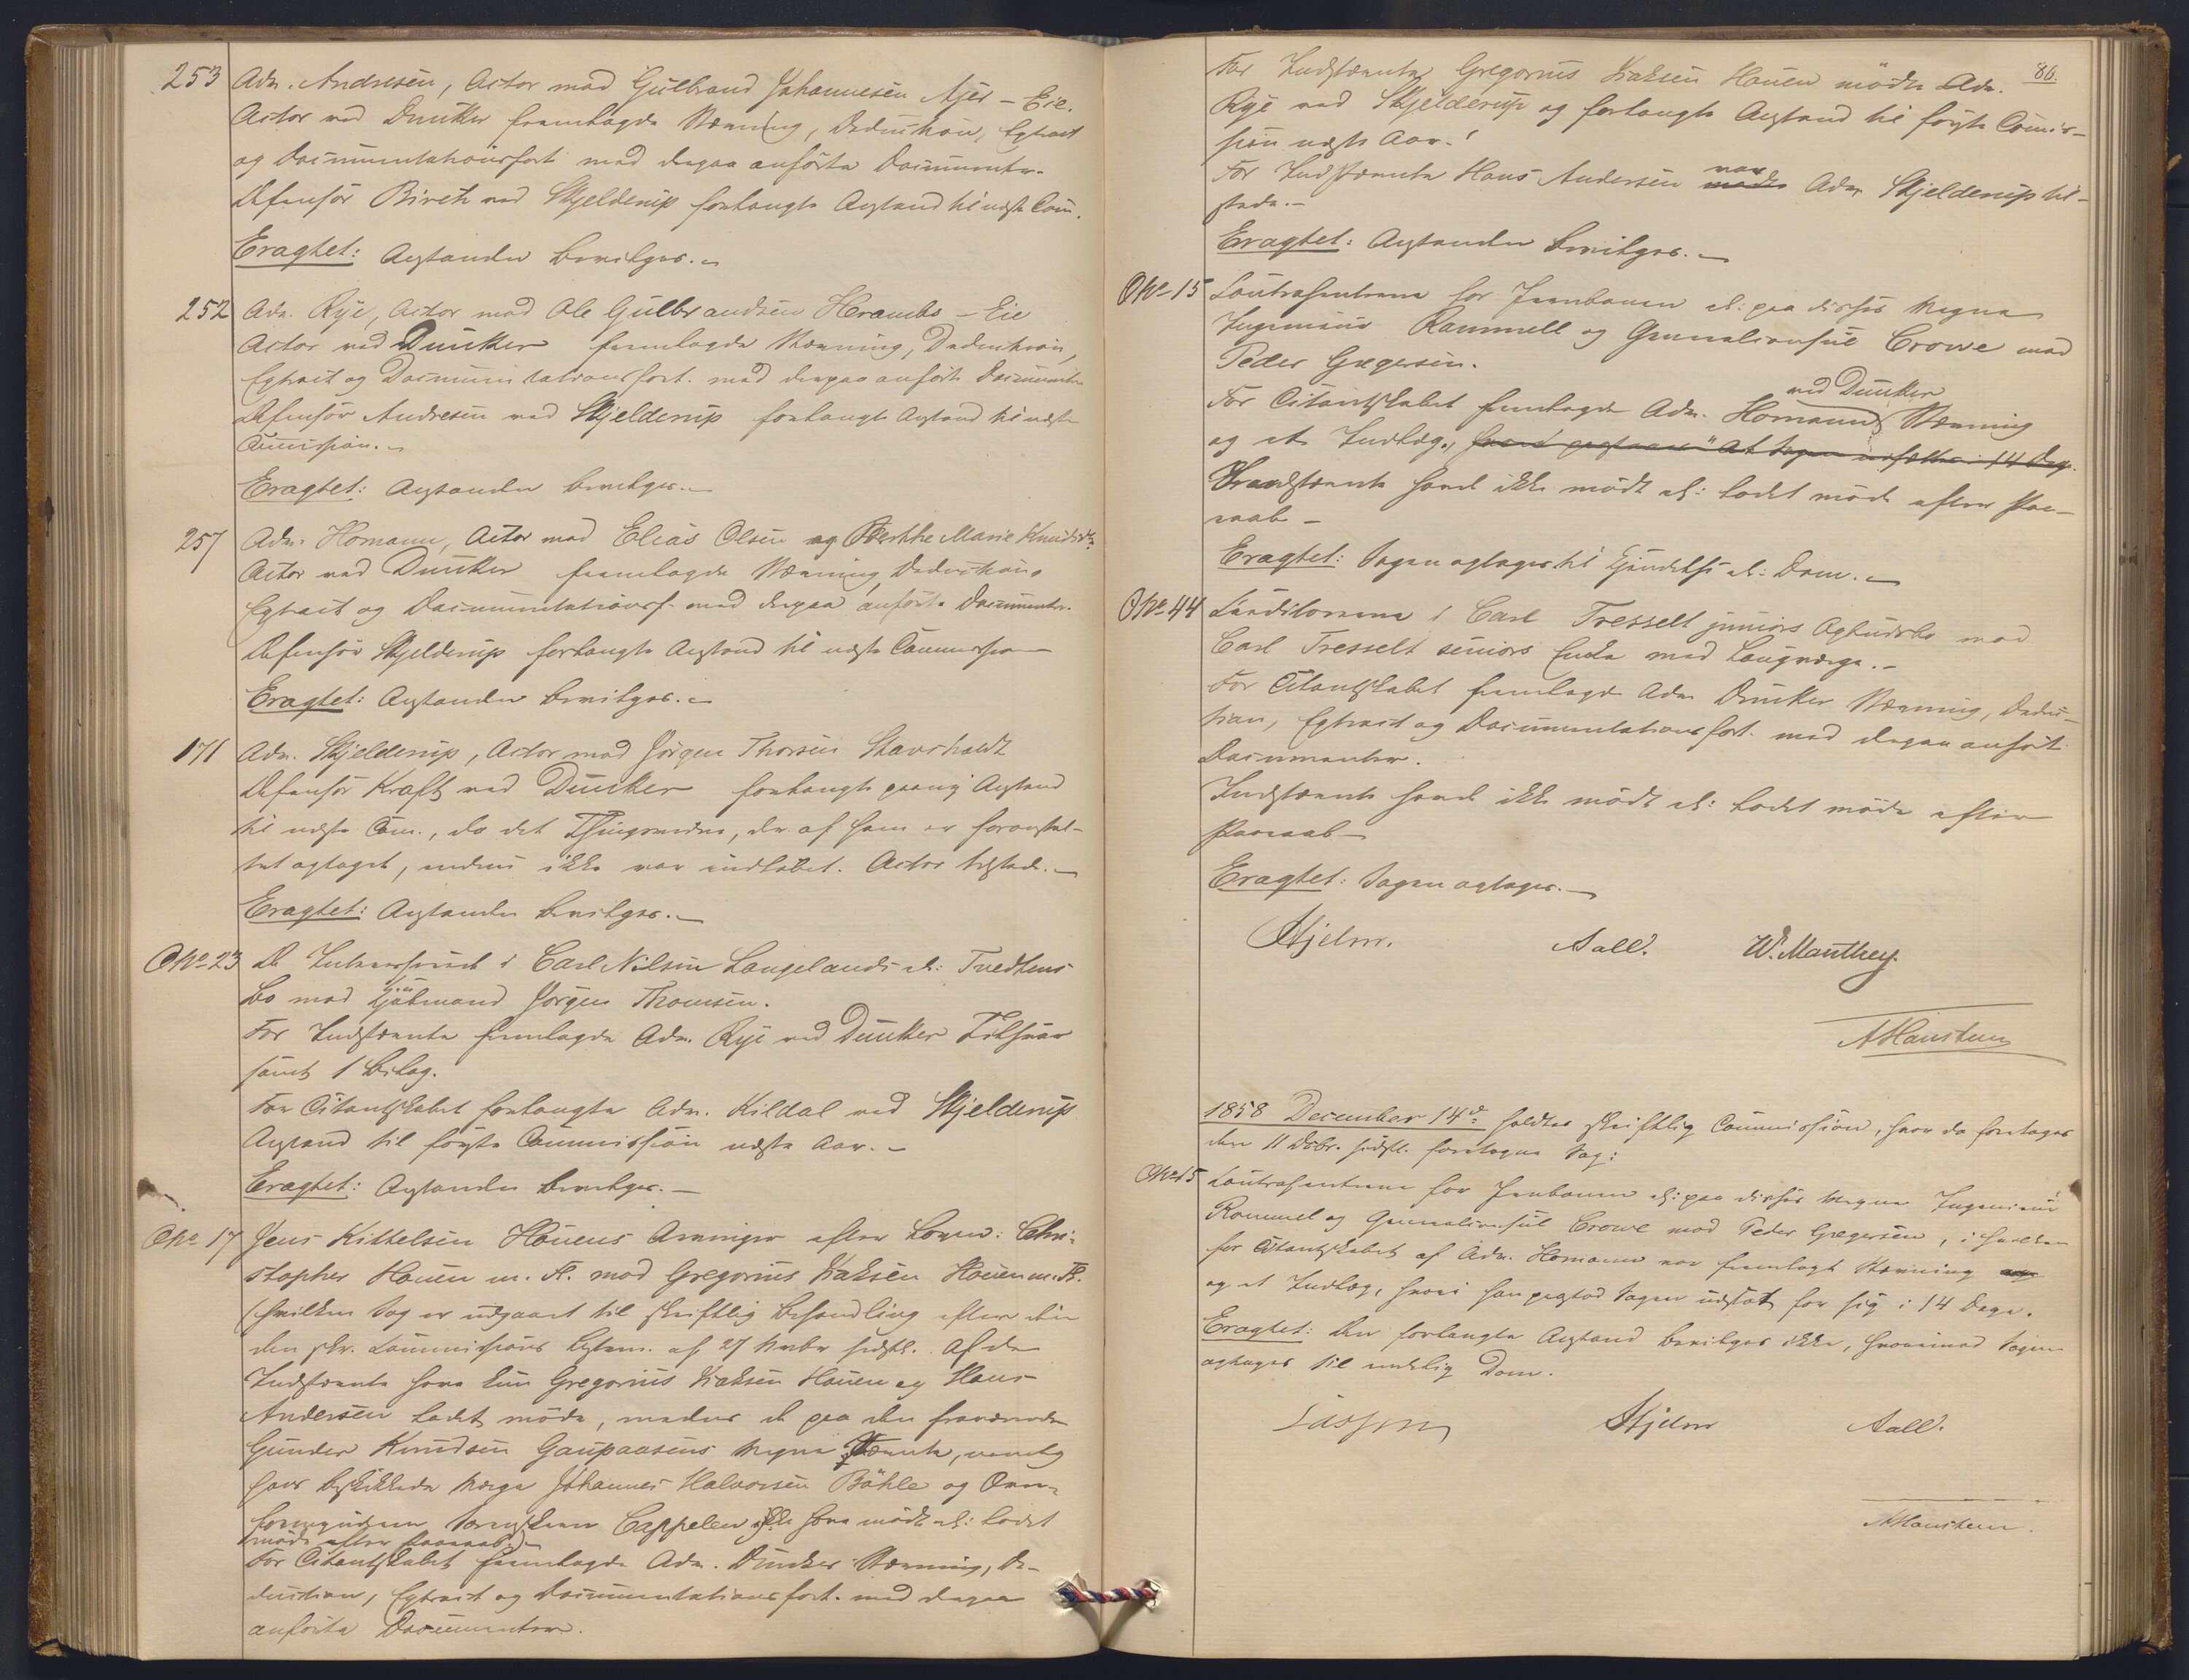 253 Adv. Andresen, Actor mod Gulbrand Johannesen Ajer – Eie.
Actor ved Dunker fremlagde Stævning, Deduktion, Extract
og Documentationsfort. med derpaa anførte Documenter.
Defensor Birch ved Skjelderup forlangte Anstand til næste Com.
Eragtet: Anstanden bevilges. –
252 Adv. Rye, Actor mod Ole Gulbrandsen Herambs – Eie
Actor ved Dunker fremlagde Stævning, Deduktion,
Extract og Documentationsfort. med derpaa anførte Documenter
Defensor Andresen ved Skjelderup forlangte Anstand til næste
Commission. –
Eragtet: Anstanden bevilges. –
257 Adv. Homann, Actor mod Elias Olsen og Berthe Marie Knudsdtr.
Actor ved Dunker fremlagde Stævning, Deduktion,
Extract og Documentationsf. med derpaa anførte Documenter.
Defensor Skjelderup forlangte Anstand til næste Commission
Eragtet: Anstanden bevilges. –
171 Adv. Skjelderup, Actor mod Jörgen Thorsen Stavsholdt
Defensor Kraft ved Dunker forlangte paany Anstand
til næste Com., da det Thingsvidne, der af ham er foranstal-
tet optaget, endnu ikke var indløbet. Actor tilstede. –
Eragtet: Anstanden bevilges. –
No 23 De Interesserede i Carl Nilsen Langelands el: Tvedtens
Bo mod Kjöbmand Jörgen Thomsen.
For Indstævnte fremlagde Adv. Rye ved Dunker Tilsvar
samt 1 Bilag.
For Citantskabet forlangte Adv. Kildal ved Skjelderup
Anstand til første Commission næste Aar. –
Eragtet: Anstanden bevilges. –
No 17 Jens Kittelsen Houens Arvinger efter Laugv: Chri-
stopher Houen m. Fl. mod Gregorius Isaksen Houen m. Fl.
(hvilken Sag er udgaaet til skriftlig Behandling efter den
den skr. Commissions Bestem. af 27 Novbr sidstl. Af de
Indstævnte have kun Gregorius Isaksen Houen og Hans
Andersen ladet møde, medens de paa den fraværende
Gunder Knudsen Gaupaasens Vegne stævnte, nemlig
hans beskikkede Værge Johannes Halvorsen Böhle og Over-
formynderen Sorenskriver Cappelen ikke have mødt el: ladet
møde efter Paaraab.) –
For Citantskabet fremlagde Adv. Dunker Stævning, De-
duction, Extract og Documentationsfort. med derpaa
anførte Documenter.
86.
For Indstævnte Gregorius Isaksen Houen mødte Adv.
Rye ved Skjelderup og forlangte Anstand til første Commis-
sion næste Aar. !
For Indstævnte Hans Andersen mødte var Adv. Skjelderup til-
stede. –
Eragtet: Anstanden bevilges. –
No 15 Contrahenterne for Jernbanen el: paa disses Vegne
Ingenieur Rammell og Generalconsul Crowe mod
Peder Gregersen.
For Citantskabet fremlagde Adv. Homann ved Dunker Stævning
og et Indlæg, hvori paastaaes "at Sagen udsættes i 14 Dage.
Indstævnte havde ikke mødt el: ladet møde efter Paa-
raab –
Eragtet: Sagen optages til Kjendelse el: Dom. –
No 44 Creditorerne i Carl Tresselt juniors Opbudsbo mod
Carl Tresselt seniors Enke med Laugværge. –
For Citantskabet fremlagde Adv Dunker Stævning, Deduc-
tion, Extract og Documentationsfort. med derpaa anført
Documenter.
Indstævnte havde ikke mødt el: ladet møde efter
Paaraab –
Eragtet: Sagen optages. –
Hjelm. Aall. W. Manthey.
A Hansteen
1858 December 14d: holdtes skriftlig Commission, hvor da foretages
den 11 Dcbr. sidstl. foretagne Sag:
No 15 Contrahenterne for Jernbanen el: paa disses Vegne Ingenieur
Rammel og Generalconsul Crowe mod Peder Gregersen, i hvilken
for Citantskabet af Adv. Homann var fremlagt Stævning
og et Indlæg, hvori han paastod Sagen udsat for sig i 14 Dage.
Eragtet: Den forlangte Anstand bevilges ikke, hvorimod Sagen
optages til endelig Dom.
Lasson Hjelm Aall.
A Hansteen.